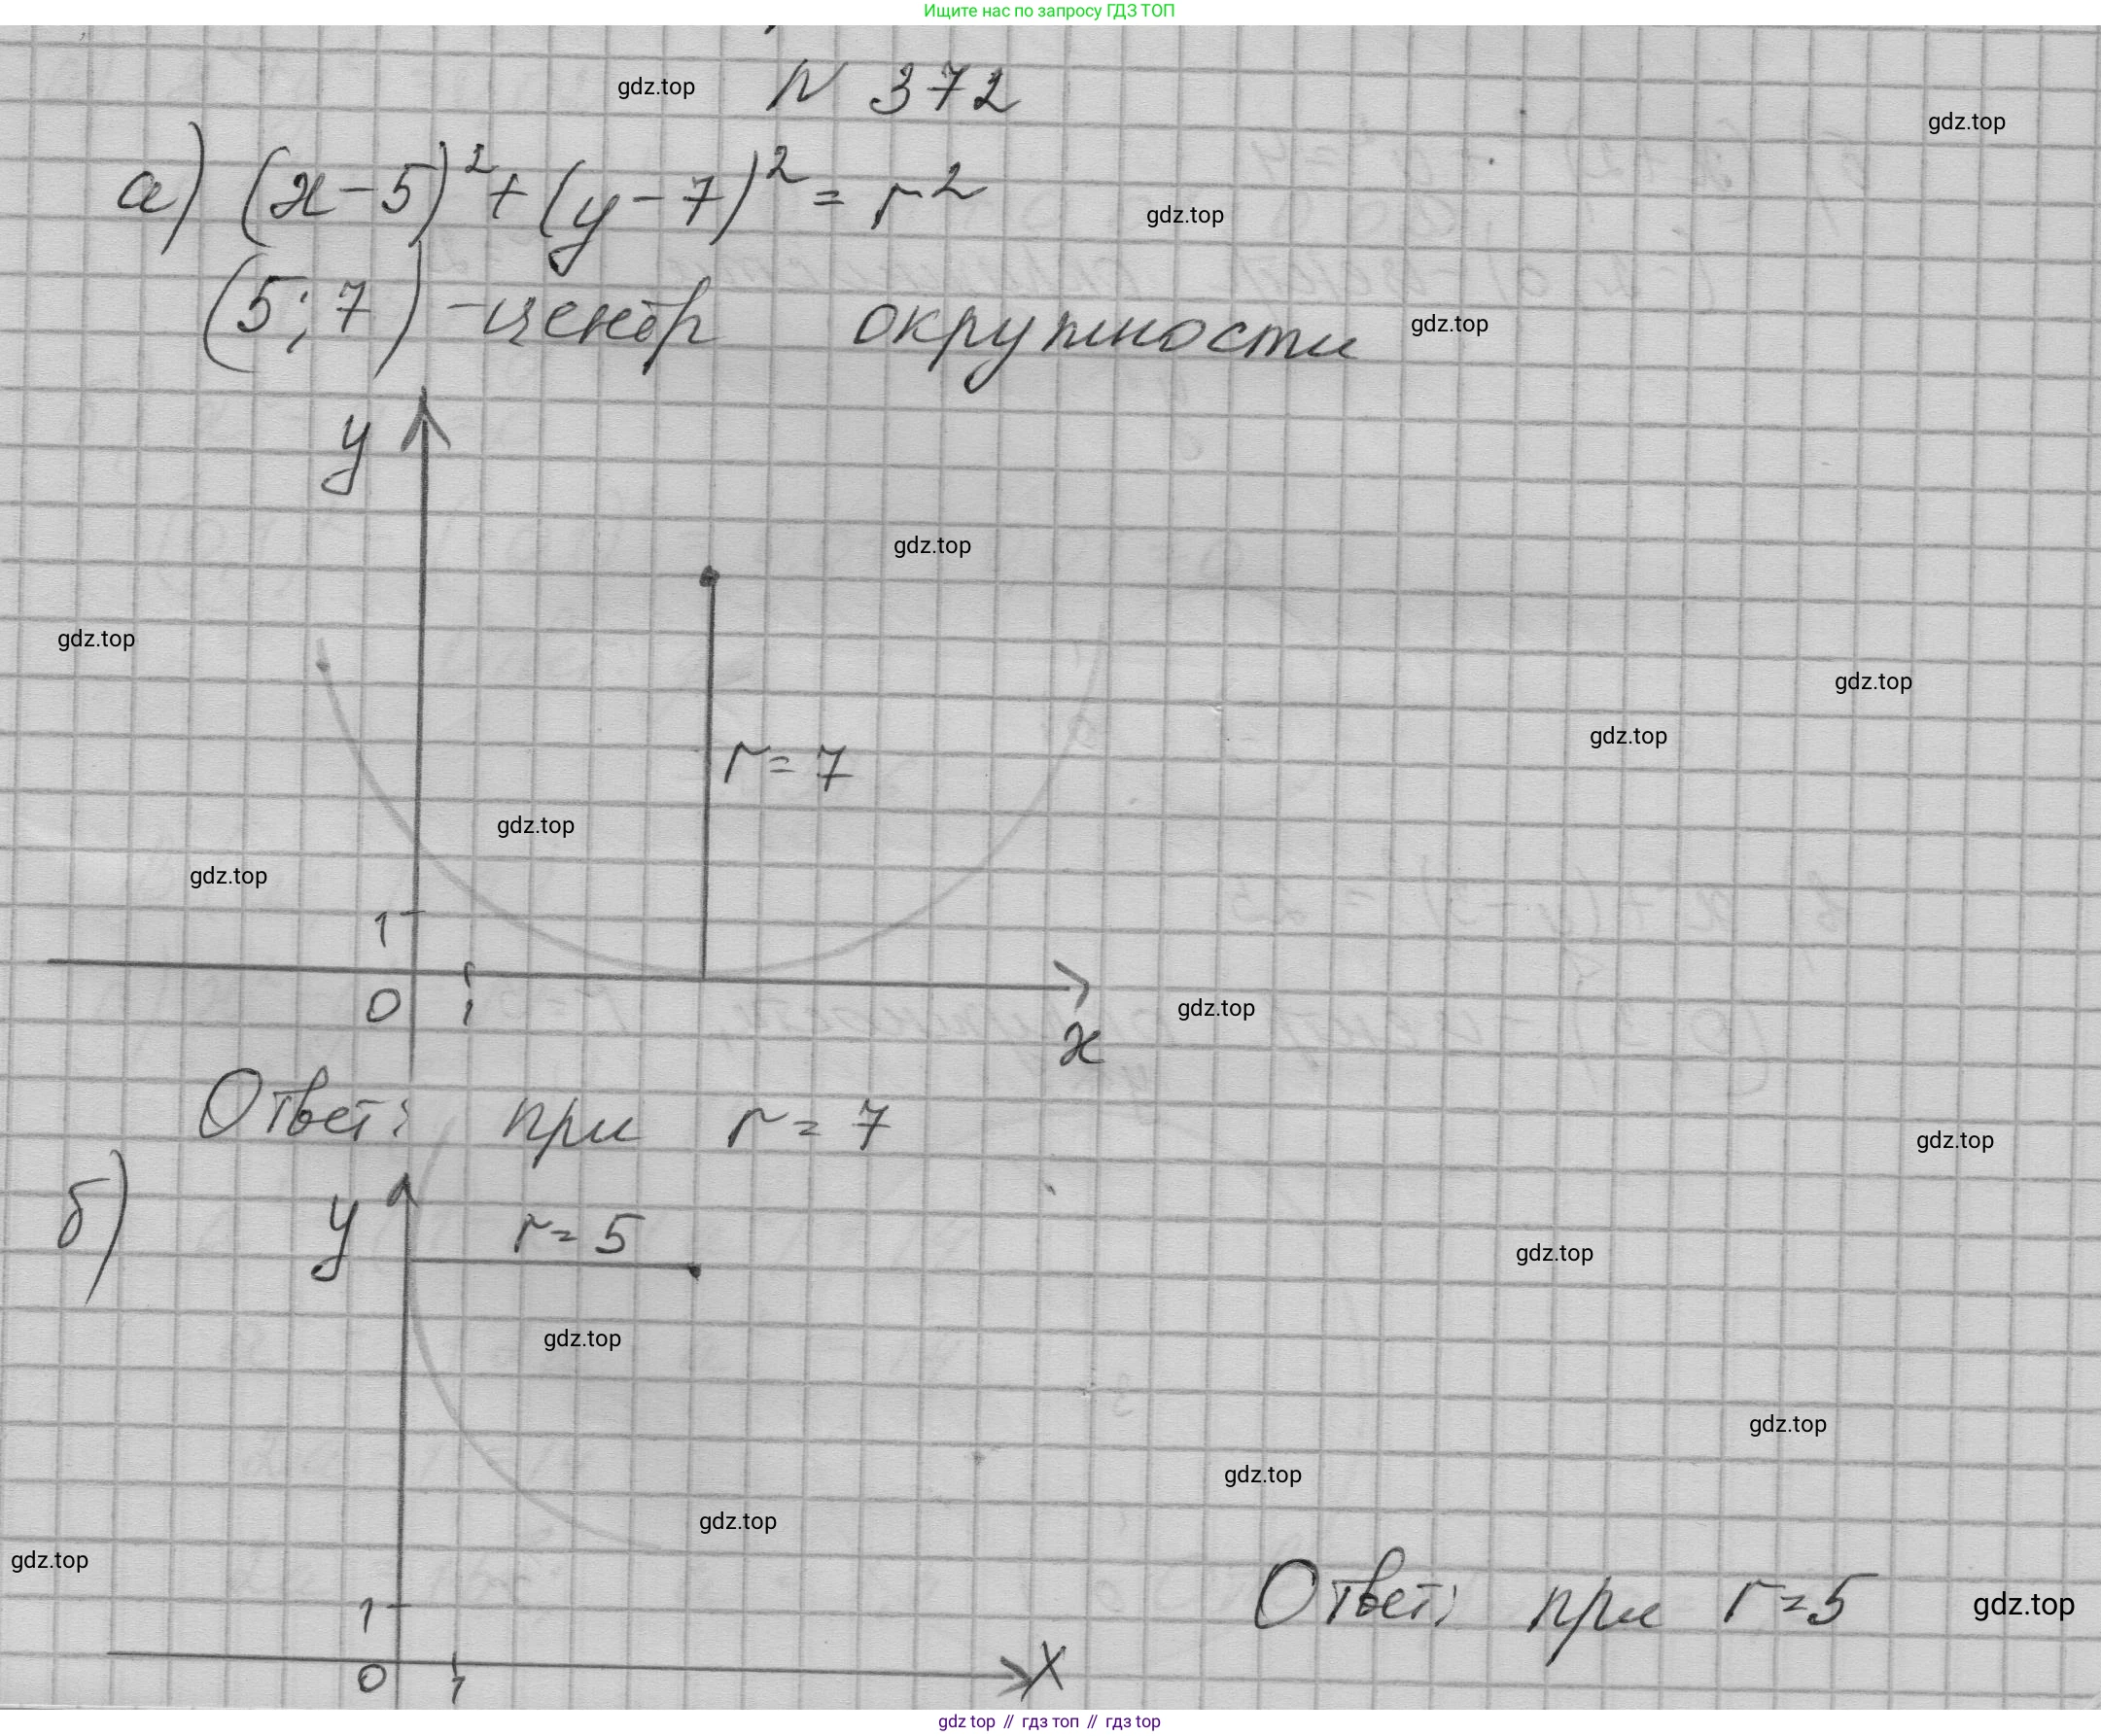 Ищите нас по запросу ГДЗ ТОП
gdz.top N 372
gdz.top
а) (x-5)² + (y-7)² = r²
gdz.top
(5; 7) - центр окружности
gdz.top
y
gdz.top
gdz.top
gdz.top
gdz.top
r = 7
gdz.top
gdz.top
1
0 1
gdz.top
x
Ответ: при r = 7
gdz.top
б) y r = 5
gdz.top
gdz.top
gdz.top
gdz.top
gdz.top
gdz.top
Ответ: при r = 5
gdz.top
1
0 1 X
gdz top // гдз топ // гдз top